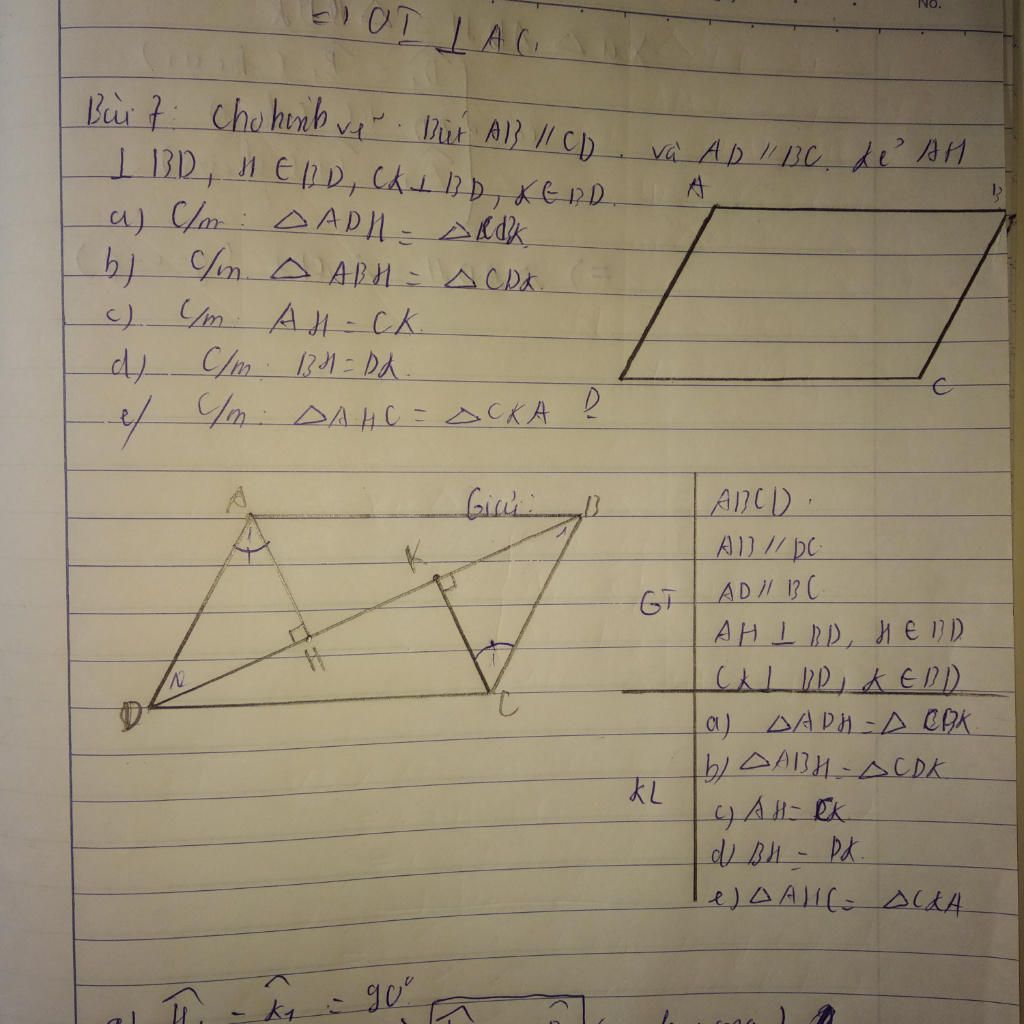 No.
=) OI ⊥ AC.
Bài 7: Cho hình vẽ. Biết AB // CD. và AD // BC. Kẻ AH
⊥ BD, H ∈ BD, CK ⊥ BD, K ∈ BD.
a) C/m: △ADH = △CBK.
b) C/m △ABH = △CDK.
c) C/m: AH = CK.
d) C/m: BH = DK.
e/ C/m: △AHC = △CKA
A B
D C
Giải:
A B
1 1
K
H 1
2
D C
GT
ABCD.
AB // DC
AD // BC
AH ⊥ BD, H ∈ BD
CK ⊥ BD, K ∈ BD
KL
a) △ADH = △CBK
b) △ABH = △CDK
c) AH = CK
d) BH = DK.
e) △AHC = △CKA
= K̂1 = 90°